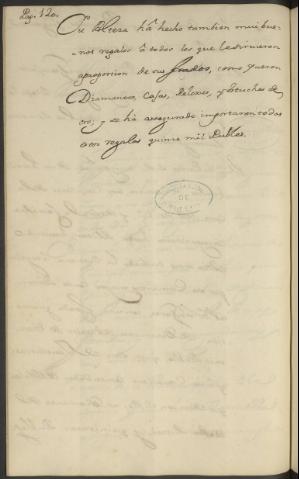 Pag. 120.
ha hecho tambien mui bue-
nos regalos à todos los que le sirvieron
à proporcion de sus grados, como fueron
Diamantes, Cajas, Reloxes, y Estuches de
oro; y se ha asegurado importaron todos
estos regalos quince mil Dublas.
DE